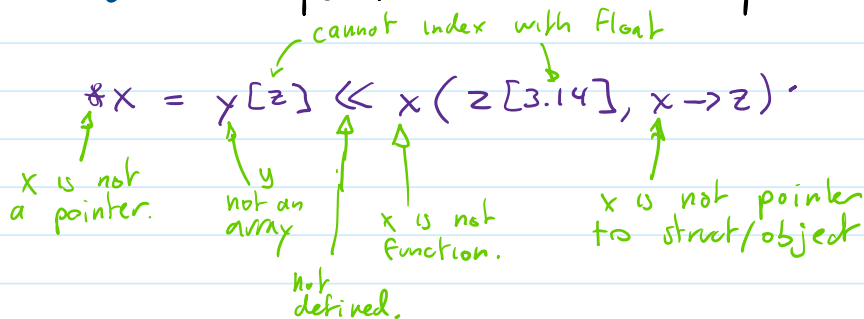 cannot index with Float
*x = y[z] << x(z[3.14], x->z)
x is not
a pointer.
y
not an
array
not
defined.
x is not
function.
x is not pointer
to struct/object